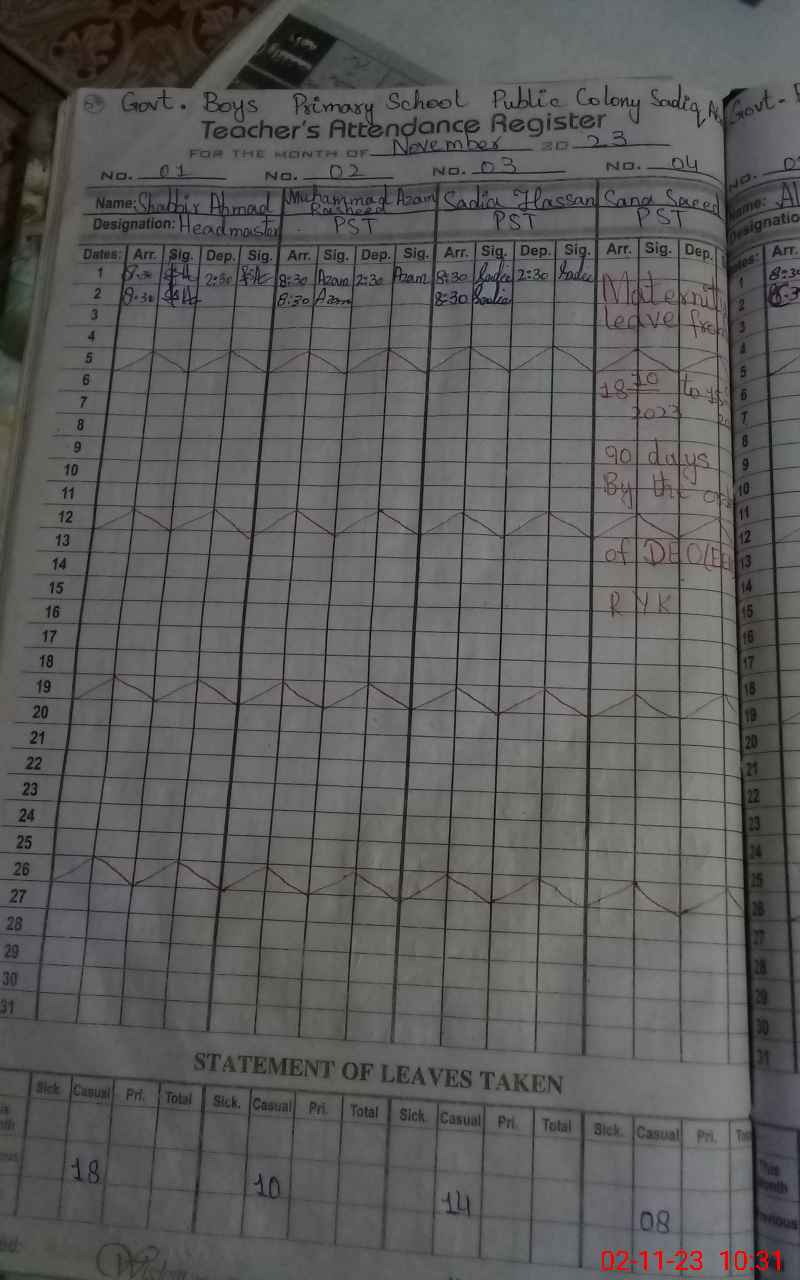 Govt. Boys Primary School Public Colony Sadiq
Teacher's Attendance Register
FOR THE MONTH OF November 20 23
No. 01 No. 02 No. 03 No. 04
Name: Shabbir Ahmad Muhammad Azam Rasheed Sadia Hassan Sana Saeed
Designation: Headmaster PST PST PST
Dates: Arr. Sig. Dep. Sig. Arr. Sig. Dep. Sig. Arr. Sig. Dep. Sig. Arr. Sig. Dep.
1 8:30 2:30 8:30 Azam 2:30 Azam 8:30 Sadia 2:30 Sadia
2 8:30 8:30 Azam 8:30 Sadia
Maternity
3
leave from
4
5
6
18 10 to
2023
7
8
9
90 days
10
By the
11
12
13
of DEO(EE
14
15
R Y K
16
17
18
19
20
21
22
23
24
25
26
27
28
29
30
31
STATEMENT OF LEAVES TAKEN
Sick. Casual Pri. Total Sick. Casual Pri. Total Sick. Casual Pri. Total Sick. Casual Pri.
18 10 14 08
Govt.
No.
Name:
Arr.
8:30
1
2
3
4
5
6
7
8
9
10
11
12
13
14
15
16
17
18
19
20
21
22
23
24
25
26
27
28
29
30
31
This
Month
02-11-23 10:31